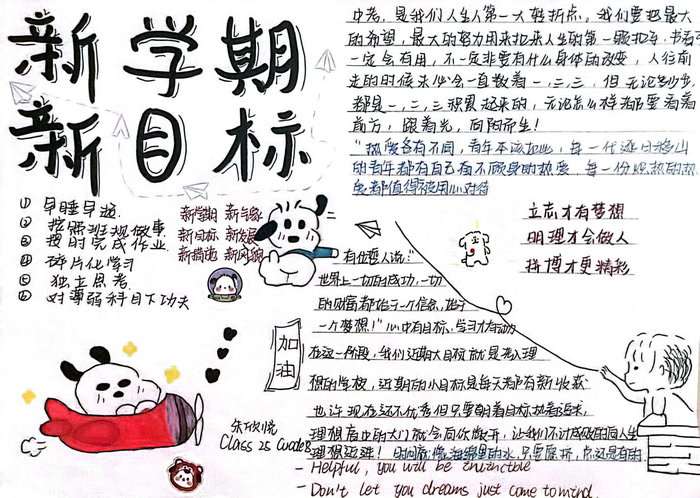 新学期
新目标
中考，是我们人生人第一大转折点，我们要把最大
的希望，最大的努力用来扣人生的第一颗扣子，书
一定会有用，不一定非要有什么身体的改变，人往前
走的时候未必会一直数着一，二，三，但无论多少步
都是一，二，三积累起来的，无论怎么样都要看着
前方，跟着光，向阳而生！
"热爱各有不同，青年本该如此，每一代逐日移山
的青年都有自己奋不顾身的热爱，每一份炽热的热
爱都值得被用心对待
① 早睡早起
② 按照班规做事
③ 按时完成作业
④ 碎片化学习
⑤ 独立思考
⑥ 对薄弱科目下功夫
新学期 新气象
新目标 新发展
立志才有梦想
明理才会做人
拼搏才更精彩
有位哲人说："
世界上一切的成功，一切
的财富都始于一个信念，始于
一个梦想！"心中有目标，学习才有动
在这一阶段，我们近期大目标就是考入理
想的学校，近期的小目标是每天都有新收获
也许现在还不优秀但只要朝着目标热着追求，
理想高中的大门就会向你敞开，让我们不讨
加油
Class 25
- Helpful, you will be invincible
- Don't let you dreams just come to mind